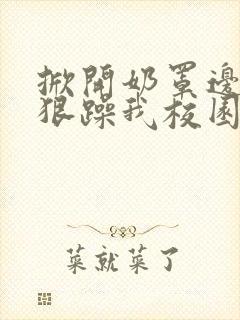 掀開奶罩邊
狠躁我校園
菜就菜了